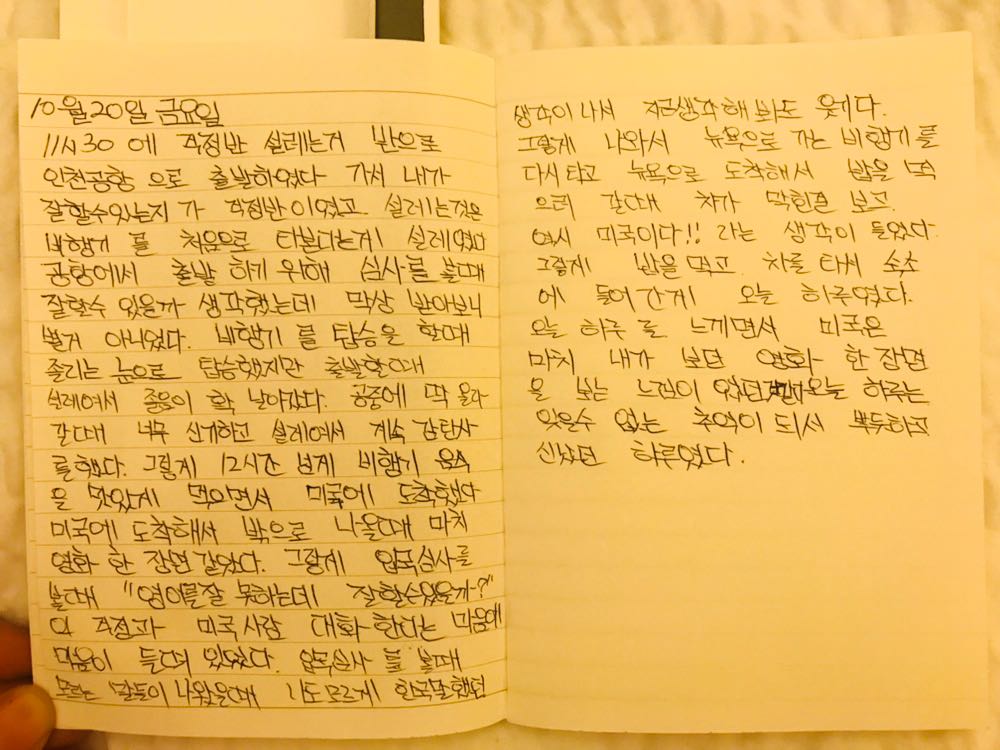 10월 20일 금요일
11시 30 에 걱정반 설레는거 반으로
인천공항 으로 출발하였다 가서 내가
잘할수있는지 가 걱정반이였고. 설레는것은
비행기 를 처음으로 타본다는게 설레였다
공항에서 출발 하기 위해 심사를 볼때
잘할수 있을까 생각했는데 막상 받아보니
별거 아니였다. 비행기 를 탑승을 할때
졸리는 눈으로 탑승했지만 출발할때
설레여서 졸음이 확 날아갔다. 공중에 딱 올라
갈때 너무 신기하고 설레여서 계속 감탄사
를했다. 그렇게 12시간 넘게 비행기 음식
을 맛있게 먹으면서 미국에 도착했다
미국에 도착해서 밖으로 나올때 마치
영화 한 장면 같았다. 그렇게 입국심사를
볼때 "영어를잘 못하는데 잘할수있을까?"
의 걱정과 미국사람 대화 한다는 마음에
마음이 들떠 있었다. 입국심사 를 볼때
모르는 말들이 나왔을때 나도모르게 한국말했던
생각이나서 지금생각해 봐도 웃기다.
그렇게 나와서 뉴욕으로 가는 비행기 를
다시타고 뉴욕으로 도착해서 밥을 먹
으러 갈때 차가 막힌걸 보고
역시 미국이다!! 라는 생각이 들었다.
그렇게 밥을 먹고 차를 타서 숙소
에 들어간게 오늘 하루였다.
오늘 하루 를 느끼면서 미국은
마치 내가 보던 영화 한 장면
을 보는 느낌이 오늘 하루는
잊을수 없는 추억이 되서 뿌듯하고
신났던 하루였다.